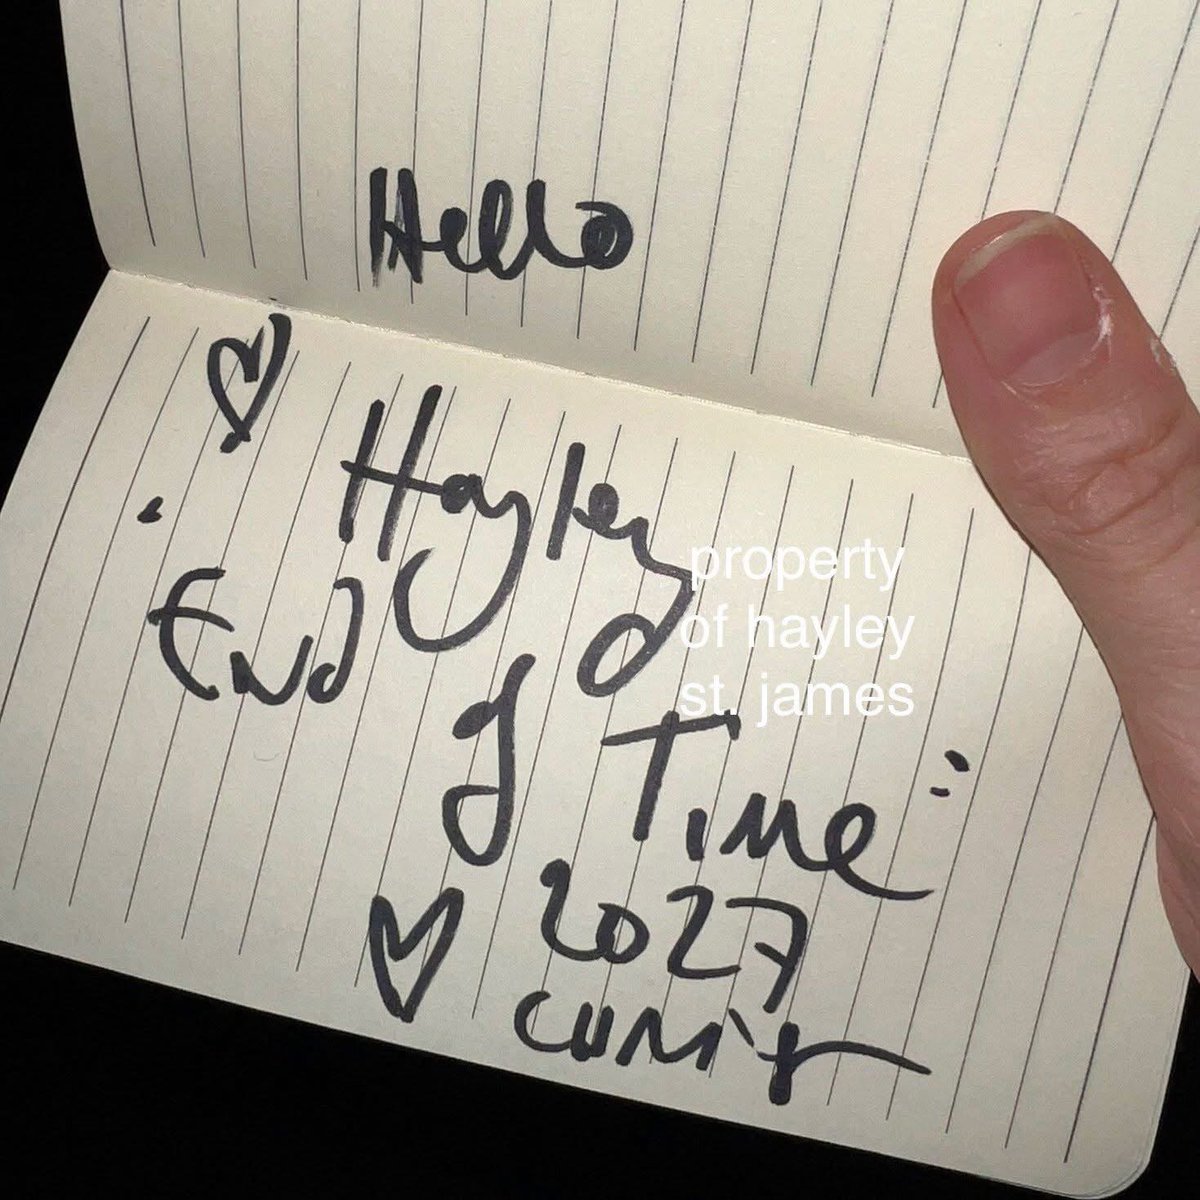 Hello
Hayley
End of Time
2027
property
of hayley
st. james